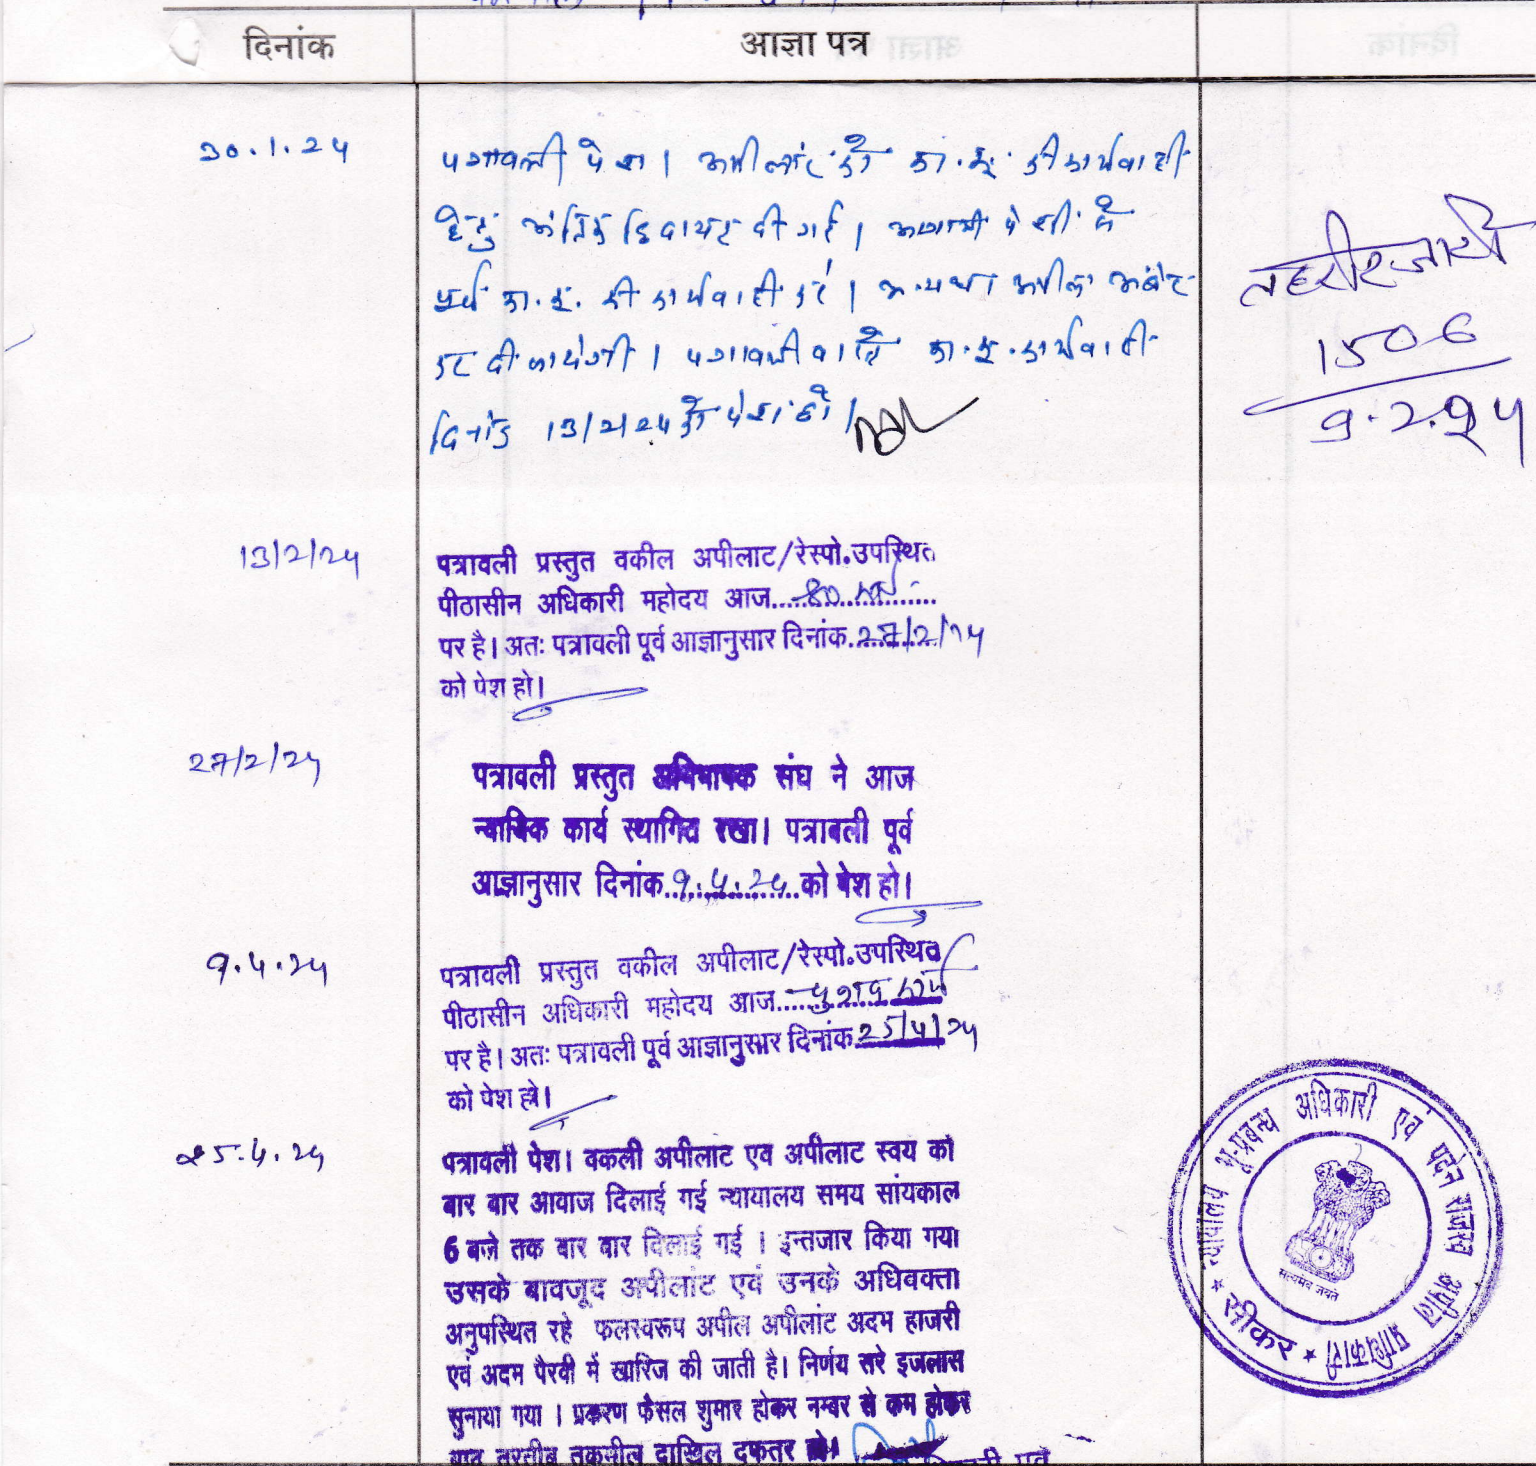 दिनांक
आज्ञा पत्र
30.1.24
पत्रावली पेश। अपीलांट को का.इ. की कार्यवाही
हेतु अंतिम हिदायत दी गई। आगामी पेशी से
पूर्व का.इ. की कार्यवाही करें। अन्यथा अपील अबेट
कर दी जायेगी। पत्रावली वास्ते का.इ. कार्यवाही
दिनांक 13/2/24 को पेश हो।
तहरीर जारी
1506
9.2.24
13/2/24
पत्रावली प्रस्तुत वकील अपीलाट/रेस्पो.उपस्थित
पीठासीन अधिकारी महोदय आज....................
पर है। अतः पत्रावली पूर्व आज्ञानुसार दिनांक 27/2/24
को पेश हो।
27/2/24
पत्रावली प्रस्तुत अभिभाषक संघ ने आज
न्यायिक कार्य स्थागित रखा। पत्राबली पूर्व
आज्ञानुसार दिनांक 9.4.24 को पेश हो।
9.4.24
पत्रावली प्रस्तुत वकील अपीलाट/रेस्पो.उपस्थित
पीठासीन अधिकारी महोदय आज....
पर है। अतः पत्रावली पूर्व आज्ञानुसार दिनांक 25/4/24
को पेश हो।
25.4.24
पत्रावली पेश। वकली अपीलाट एव अपीलाट स्वय को
बार बार आवाज दिलाई गई न्यायालय समय सांयकाल
6 बजे तक बार बार दिलाई गई । इन्तजार किया गया
उसके बावजूद अपीलांट एवं उनके अधिवक्ता
अनुपस्थित रहे फलस्वरूप अपील अपीलांट अदम हाजरी
एवं अदम पैरवी में खारिज की जाती है। निर्णय सरे इजलास
सुनाया गया । प्रकरण फैसल शुमार होकर नम्बर से कम होकर
बाद तरतीब तकमील दाखिल दफतर हो।
न्यायालय भू-प्रबन्ध अधिकारी एवं पदेन राजस्व अपील प्राधिकारी
सीकर
सत्यमेव जयते